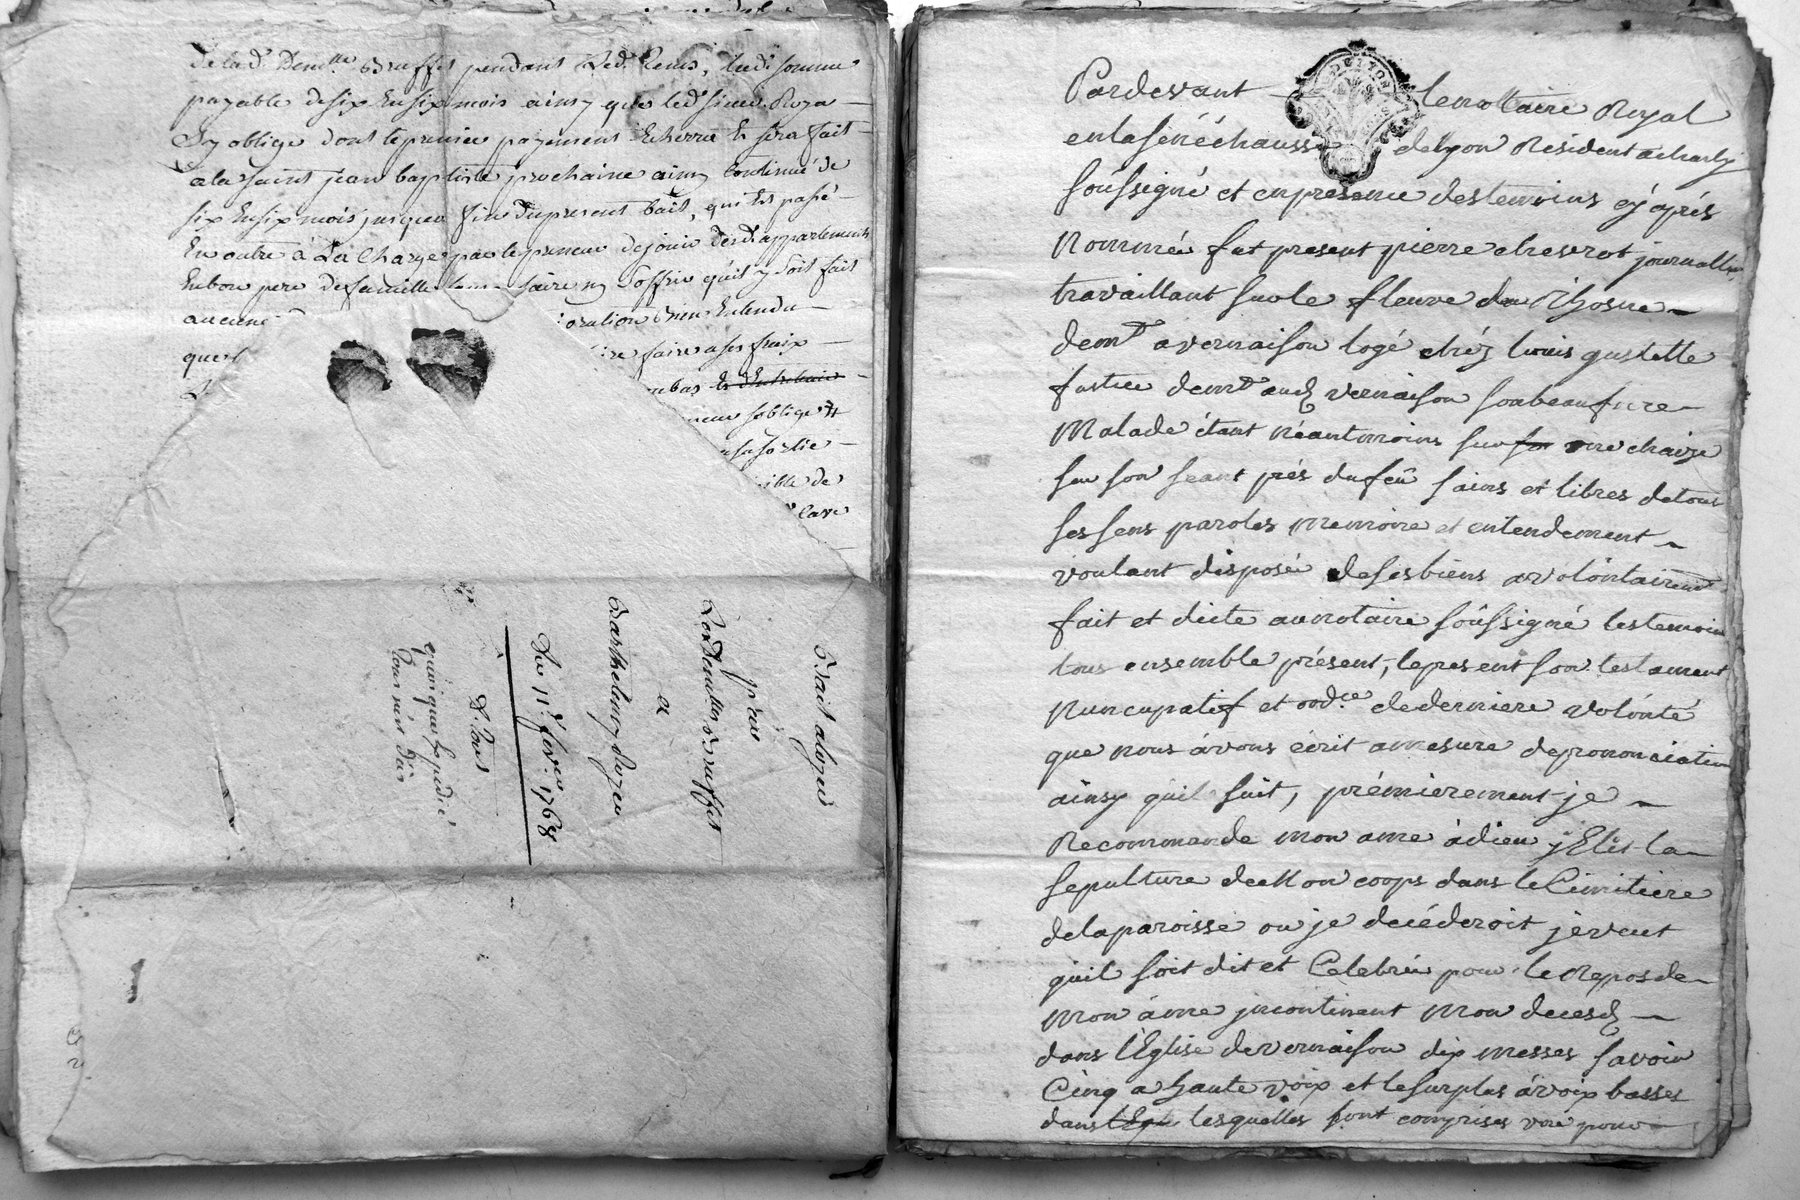 de lad. Demlle Bruffet pendant led. tems, lad. somme
payable de six en six mois ainsy que led. sieur Roza
sy oblige dont le premier payement Echerra et sera fait
a la saint jean baptiste prochaine ainsy continué de
six en six mois jusques a fin du present bail, qui Est passé
En outre à La Charge par le preneur de jouir desd. appartements
En bon pere de famille faire ny soffrir quil y soit fait
aucune oration bien Entendu
que faire a ses fraix
en bas
neur soblige
a sa sortie
ible de
cave
Bail a loyer
par
Les Demlles Bruffet
a
Barthelemy Rozeu
Du 11e fevr. 1768
Pardevant le nottaire Royal
en la sénéchaussé de Lyon Résident a charly
soussigné et en presence des temoins cy aprés
Nommés fut present pierre chevrot journallier
travaillant sur le fleuve du Rhosne
demt a vernaison logé chéz louis gustelle
fustier demt aud vernaison son beaufrere
Malade étant néantmoins sur so une chaize
sur son seant prés du feu sains et libres de tous
ses sens paroles memoire et entendement
voulant disposé de ses biens a volontairement
fait et dicte au notaire soussigné les temoins
tous ensemble présent, le present son testament
Nuncupatif et ordce de derniere volonté
que nous avons écrit a mesure de prononciation
ainsy quil suit, prémierement je
Recommande mon ame à dieu j'Elis la
sepulture de Mon coops dans le Cimitiere
de la paroisse ou je decéderoit je veut
quil soit dit et Celebrée pour le Repos de
Mon âme jncontinent Mon deces
dans l'Eglise de vernaison dix messes savoir
Cinq a haute voix et le surplus a voix basses
dans l'Egl lesquelles sont comprises pour